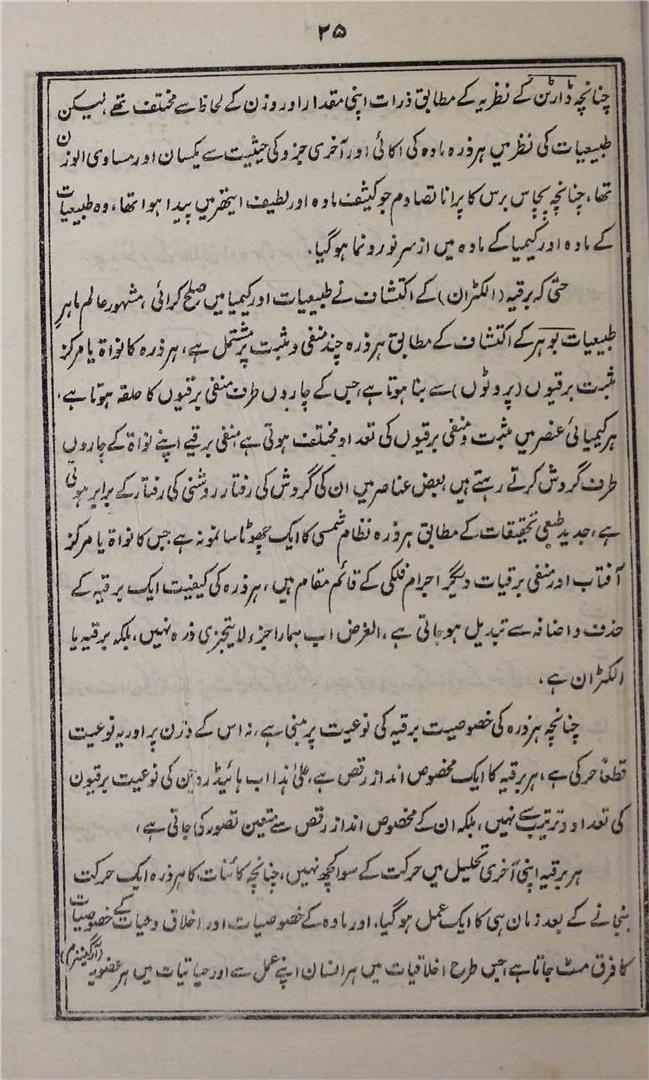 ۲۵
چنانچہ ڈارٹن کے نظریہ کے مطابق ذرات اپنی مقدار اور وزن کے لحاظ سے مختلف تھے لیکن
طبیعیات کی نظر میں ہر ذرہ مادہ کی اکائی اور آخری جزو کی حیثیت سے یکساں اور مساوی الوزن
تھا، چنانچہ پچاس برس کا پرانا تصادم جو کثیف مادہ اور لطیف ایتھر میں پیدا ہوا تھا، وہ طبیعیات
کے مادہ اور کیمیا کے مادہ میں از سر نو رونما ہوگیا۔
حتیٰ کہ برقیہ (الکٹران) کے اکتشاف نے طبیعیات اور کیمیا میں صلح کرائی، مشہور عالم ماہر
طبیعیات بوہر کے اکتشاف کے مطابق ہر ذرہ چند منفی و مثبت پر مشتمل ہے، ہر ذرہ کا نواۃ یا مرکز
مثبت برقیوں (پروٹوں) سے بنا ہوتا ہے جس کے چاروں طرف منفی برقیوں کا حلقہ ہوتا ہے،
ہر کیمیائی عنصر میں مثبت و منفی برقیوں کی تعداد مختلف ہوتی ہے منفی برقیے اپنے نواۃ کے چاروں
طرف گردش کرتے رہتے ہیں بعض عناصر میں ان کی گردش کی رفتار روشنی کی رفتار کے برابر ہوتی
ہے، جدید طبعی تحقیقات کے مطابق ہر ذرہ نظام شمسی کا ایک چھوٹا سا نمونہ ہے جس کا نواۃ یا مرکز
آفتاب اور منفی برقیات دیگر اجرام فلکی کے قائم مقام ہیں، ہر ذرہ کی کیفیت ایک برقیہ کے
حذف و اضافہ سے تبدیل ہو جاتی ہے، الغرض اب ہمارا جزء لا یتجزی ذرہ نہیں، بلکہ برقیہ یا
الکٹران ہے،
چنانچہ ہر ذرہ کی خصوصیت برقیہ کی نوعیت پر مبنی ہے، نہ اس کے وزن پر اور یہ نوعیت
قطعاً حرکی ہے، ہر برقیہ کا ایک مخصوص انداز رقص ہے، علیٰ ہذا اب ہائیڈروجن کی نوعیت برقیوں
کی تعداد و ترتیب سے نہیں، بلکہ ان کے مخصوص انداز رقص سے متعین تصور کی جاتی ہے،
ہر برقیہ اپنی آخری تحلیل میں حرکت کے سوا کچھ نہیں، چنانچہ کائنات کا ہر ذرہ ایک حرکت
بنجانے کے بعد زمان ہی کا ایک عمل ہوگیا، اور مادہ کے خصوصیات اور اخلاق و حیات کے خصوصیات
کا فرق مٹ جاتا ہے جس طرح اخلاقیات میں ہر انسان اپنے عمل سے اور حیاتیات میں ہر عضویہ (آرگینزم)